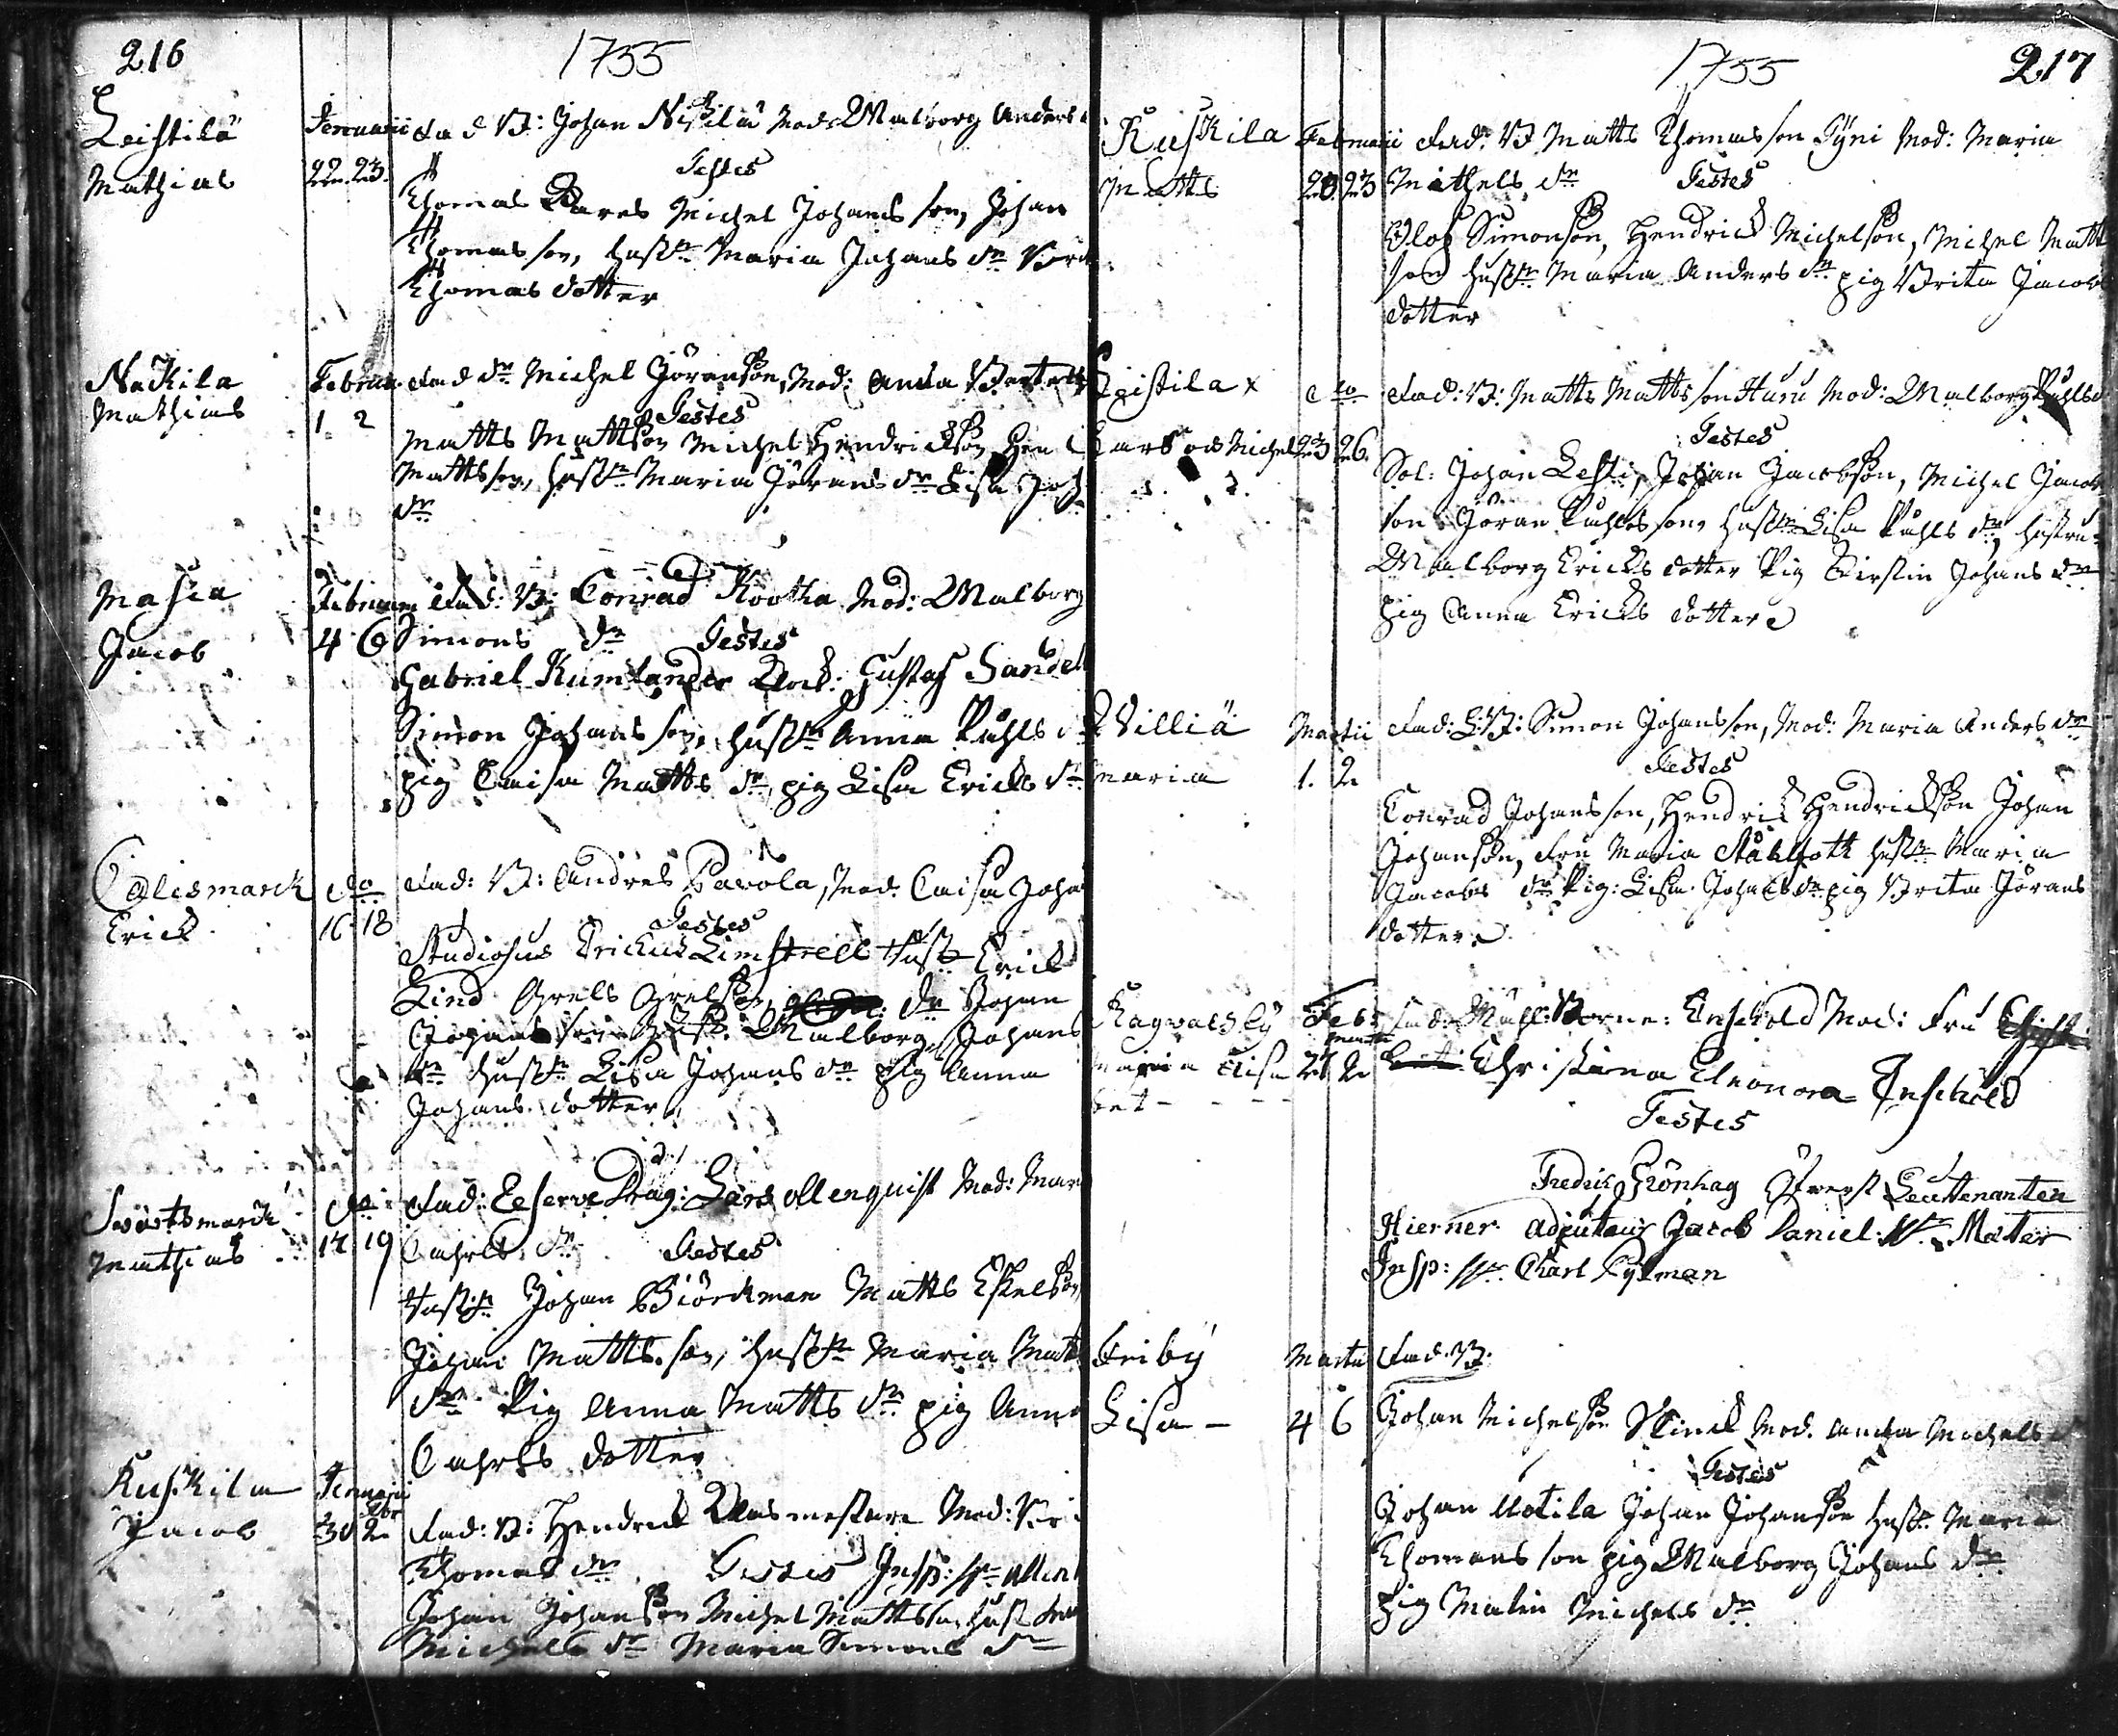 216
1755
Leistilä
Mathias
Januarii
22. 23.
Fad B: Johan Nikilä Mod: Walborg Anders
Testes
Thomas Michel Johans son, Johan
Thomas son, hustr Maria Johans dr
Thomas dotter
Nackila
Mathias
Februar
1. 2
Fad dr Michel Jöransson, Mod: Anna
Testes
Matts Mattsson Michel Hendricksson Hen
Mattsson, hustr Maria Jörans dr Lisa Joh
dr
Masia
Jacob
Februar
4 6
Fad: B: Conrad Kootka Mod: Walborg
Simons dr Testes
Gabriel Kumlander Gustaf Sandell
Simon Johans son, hustr Anna Påhls dr
pig Caisa Matts dr, pig Lisa Ericks dr
Calismarck
Erick
do
16 18
Fad: B: Andres Pavola, Mod. Caisa Joha
Testes
Studiosus Erickus Limstrell Erick
Lind Grels Grelsson, dr Johan
Johans son Walborg Johans
dr hustr Lisa Johans dr pig Anna
Johans dotter
Svartsmarck
Mathias
do
17 19
Fad: Reserve Drag: Lars Allenquist Mod: Mar
Carls dr Testes
Johan Biörckman Matts Eskelsson
Johan Matts son, hustr Maria Matts
dr Pig Anna Matts dr pig Anna
dotter
Kuskila
Jacob
Januarii
Febr
30 2
Fad: B: Hendrick Klasmestare Mod:
Thomas dr Testes Insp: Hr
Johan Johansson Michel Mattsson, hust
Michels dr Maria Simons dr
1755
217
Kuskila
Matts
Februarii
20 23
Fad: B Matts Thomas son Tyni Mod: Maria
Mathels dr Testes
Olof Simonson, Hendrick Michelson, Michel Matts
son hustr Maria Anders dr pig Brita Jacobs
dotter
Leistila x
Lars och Michel
do
23 26.
Fad: B: Matts Matts son Huru Mod: Walborg Påhls d
Testes
Sol: Johan Lesti, Johan Jacobson, Michel Jacob
son Jöran Påhls son, hustr Lisa Påhls dr, hustru
Walborg Ericks dotter Pig Kirstin Johans dr
pig Anna Ericks dotter
Villiä
Maria
Martii
1. 2
Fad: L: B: Simon Johansson, Mod: Maria Anders dr
Testes
Conrad Johansson, Hendrick Hendrickson Johan
Johanson, Fru Maria Stålfott hustr Maria
Jacobs dr Pig: Lisa Johans dr pig Brita Jörans
dotter
Ragvalsby
Maria Elisa
bet - - - -
Feb:
Martii
27 2
Fad: Välb: Borne: Ensköld Mod: Fru
Christiana Eleonora Ensköld
Testes
Fredrik Grönhag Öfverst Leutenanten
Hierner adjutant Jacob Daniel Hr Mater
Insp: Hr Charl Ryman
Friby
Lisa -
Martii
4 6
Fad. B:
Johan Michelson Klinck Mod. Anna Michels d
Testes
Johan Uotila Johan Johanson hustr Maria
Thomas son pig Walborg Johans dr
pig Malin Michels dr